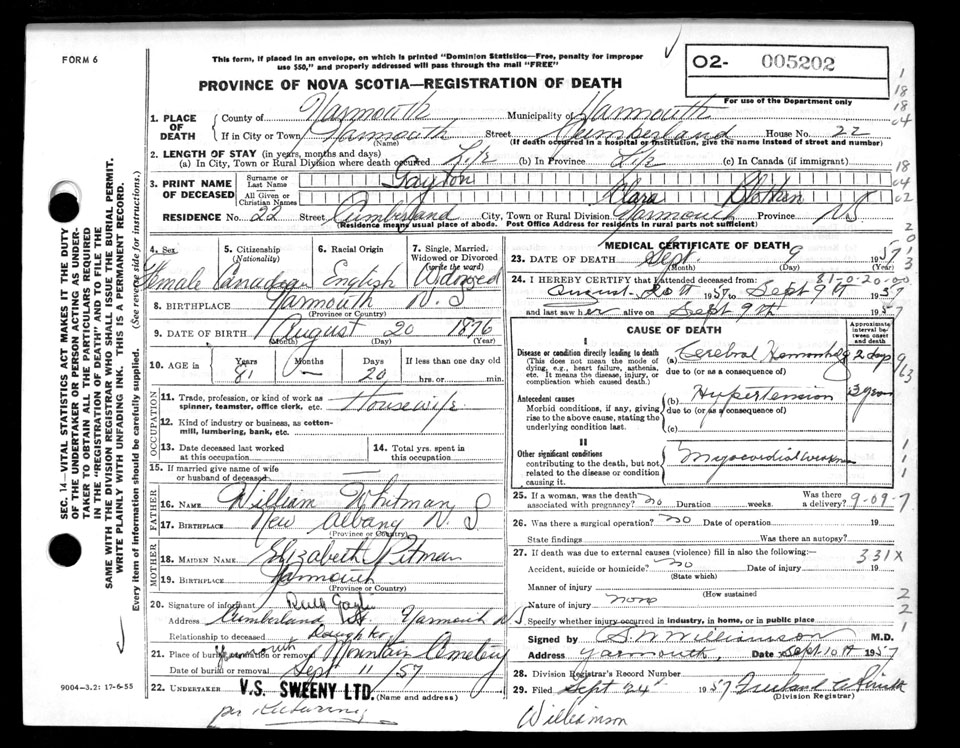 FORM 6
This form, if placed in an envelope, on which is printed "Dominion Statistics—Free, penalty for improper
use $50," and properly addressed will pass through the mail "FREE"
PROVINCE OF NOVA SCOTIA—REGISTRATION OF DEATH
O2- 005202
For use of the Department only
1. PLACE OF DEATH
County of Yarmouth Municipality of Yarmouth
If in City or Town Yarmouth Street Cumberland House No. 22
(Name) (If death occurred in a hospital or institution, give the name instead of street and number)
2. LENGTH OF STAY (in years, months and days)
(a) In City, Town or Rural Division where death occurred Life (b) In Province Life (c) In Canada (if immigrant)
3. PRINT NAME OF DECEASED
Surname or Last Name Gayton
All Given or Christian Names Clara
RESIDENCE No. 22 Street Cumberland City, Town or Rural Division Yarmouth Province NS
(Residence means usual place of abode. Post Office Address for residents in rural parts not sufficient)
4. Sex 5. Citizenship (Nationality) 6. Racial Origin 7. Single, Married, Widowed or Divorced (write the word)
Female Canadian English Widowed
8. BIRTHPLACE Yarmouth N. S
(Province or Country)
9. DATE OF BIRTH August 20 1876
(Month) (Day) (Year)
10. AGE in Years Months Days If less than one day old
81 — 20 hrs. or min.
OCCUPATION
11. Trade, profession, or kind of work as spinner, teamster, office clerk, etc. Housewife
12. Kind of industry or business, as cotton-mill, lumbering, bank, etc.
13. Date deceased last worked at this occupation
14. Total yrs. spent in this occupation
15. If married give name of wife or husband of deceased —
FATHER
16. NAME William Whitman
17. BIRTHPLACE New Albany N. S
(Province or Country)
MOTHER
18. MAIDEN NAME Elizabeth Pitman
19. BIRTHPLACE Yarmouth
(Province or Country)
20. Signature of informant Ruth
Address Cumberland St. Yarmouth N S
Relationship to deceased Daughter
21. Place of burial, cremation or removal Yarmouth Mountain Cemetery
Date of burial or removal Sept 11/57
22. UNDERTAKER V.S. SWEENY LTD. (Name and address)
per
9004—3.2: 17-6-55
SEC. 14—VITAL STATISTICS ACT MAKES IT THE DUTY
OF THE UNDERTAKER OR PERSON ACTING AS UNDER-
TAKER TO OBTAIN ALL THE PARTICULARS REQUIRED
IN THE "REGISTRATION OF DEATH" AND TO FILE THE
SAME WITH THE DIVISION REGISTRAR WHO SHALL ISSUE THE BURIAL PERMIT.
WRITE PLAINLY WITH UNFADING INK. THIS IS A PERMANENT RECORD.
Every item of information should be carefully supplied. (See reverse side for instructions.)
MEDICAL CERTIFICATE OF DEATH
23. DATE OF DEATH Sept. 9 1957
(Month) (Day) (Year)
24. I HEREBY CERTIFY that I attended deceased from: 81-0-20-00
August 20th 1957 to Sept 9th 1957
and last saw her alive on Sept 9th 1957
CAUSE OF DEATH
Approximate interval between onset and death
I
Disease or condition directly leading to death
(This does not mean the mode of dying, e.g., heart failure, asthenia, etc. It means the disease, injury, or complication which caused death.)
(a) Cerebral Hemorrhage 2 days
due to (or as a consequence of)
Antecedent causes
Morbid conditions, if any, giving rise to the above cause, stating the underlying condition last.
(b) Hypertension 3 years
due to (or as a consequence of)
(c)
II
Other significant conditions
contributing to the death, but not related to the disease or condition causing it.
Myocardial
25. If a woman, was the death associated with pregnancy? no Duration weeks. Was there a delivery? 9-09-7
26. Was there a surgical operation? no Date of operation 19
State findings Was there an autopsy?
27. If death was due to external causes (violence) fill in also the following:— 331X
Accident, suicide or homicide? no Date of injury 19
(State which)
Manner of injury
(How sustained)
Nature of injury none
Specify whether injury occurred in industry, in home, or in public place
Signed by S. W Williamson M.D.
Address Yarmouth, Date Sept 10th 1957
28. Division Registrar's Record Number
29. Filed Sept 24th 1957
(Division Registrar)
Williamson
1
18
18
04
18
04
02
2
0
1
3
9
63
1
1
1
2
2
1